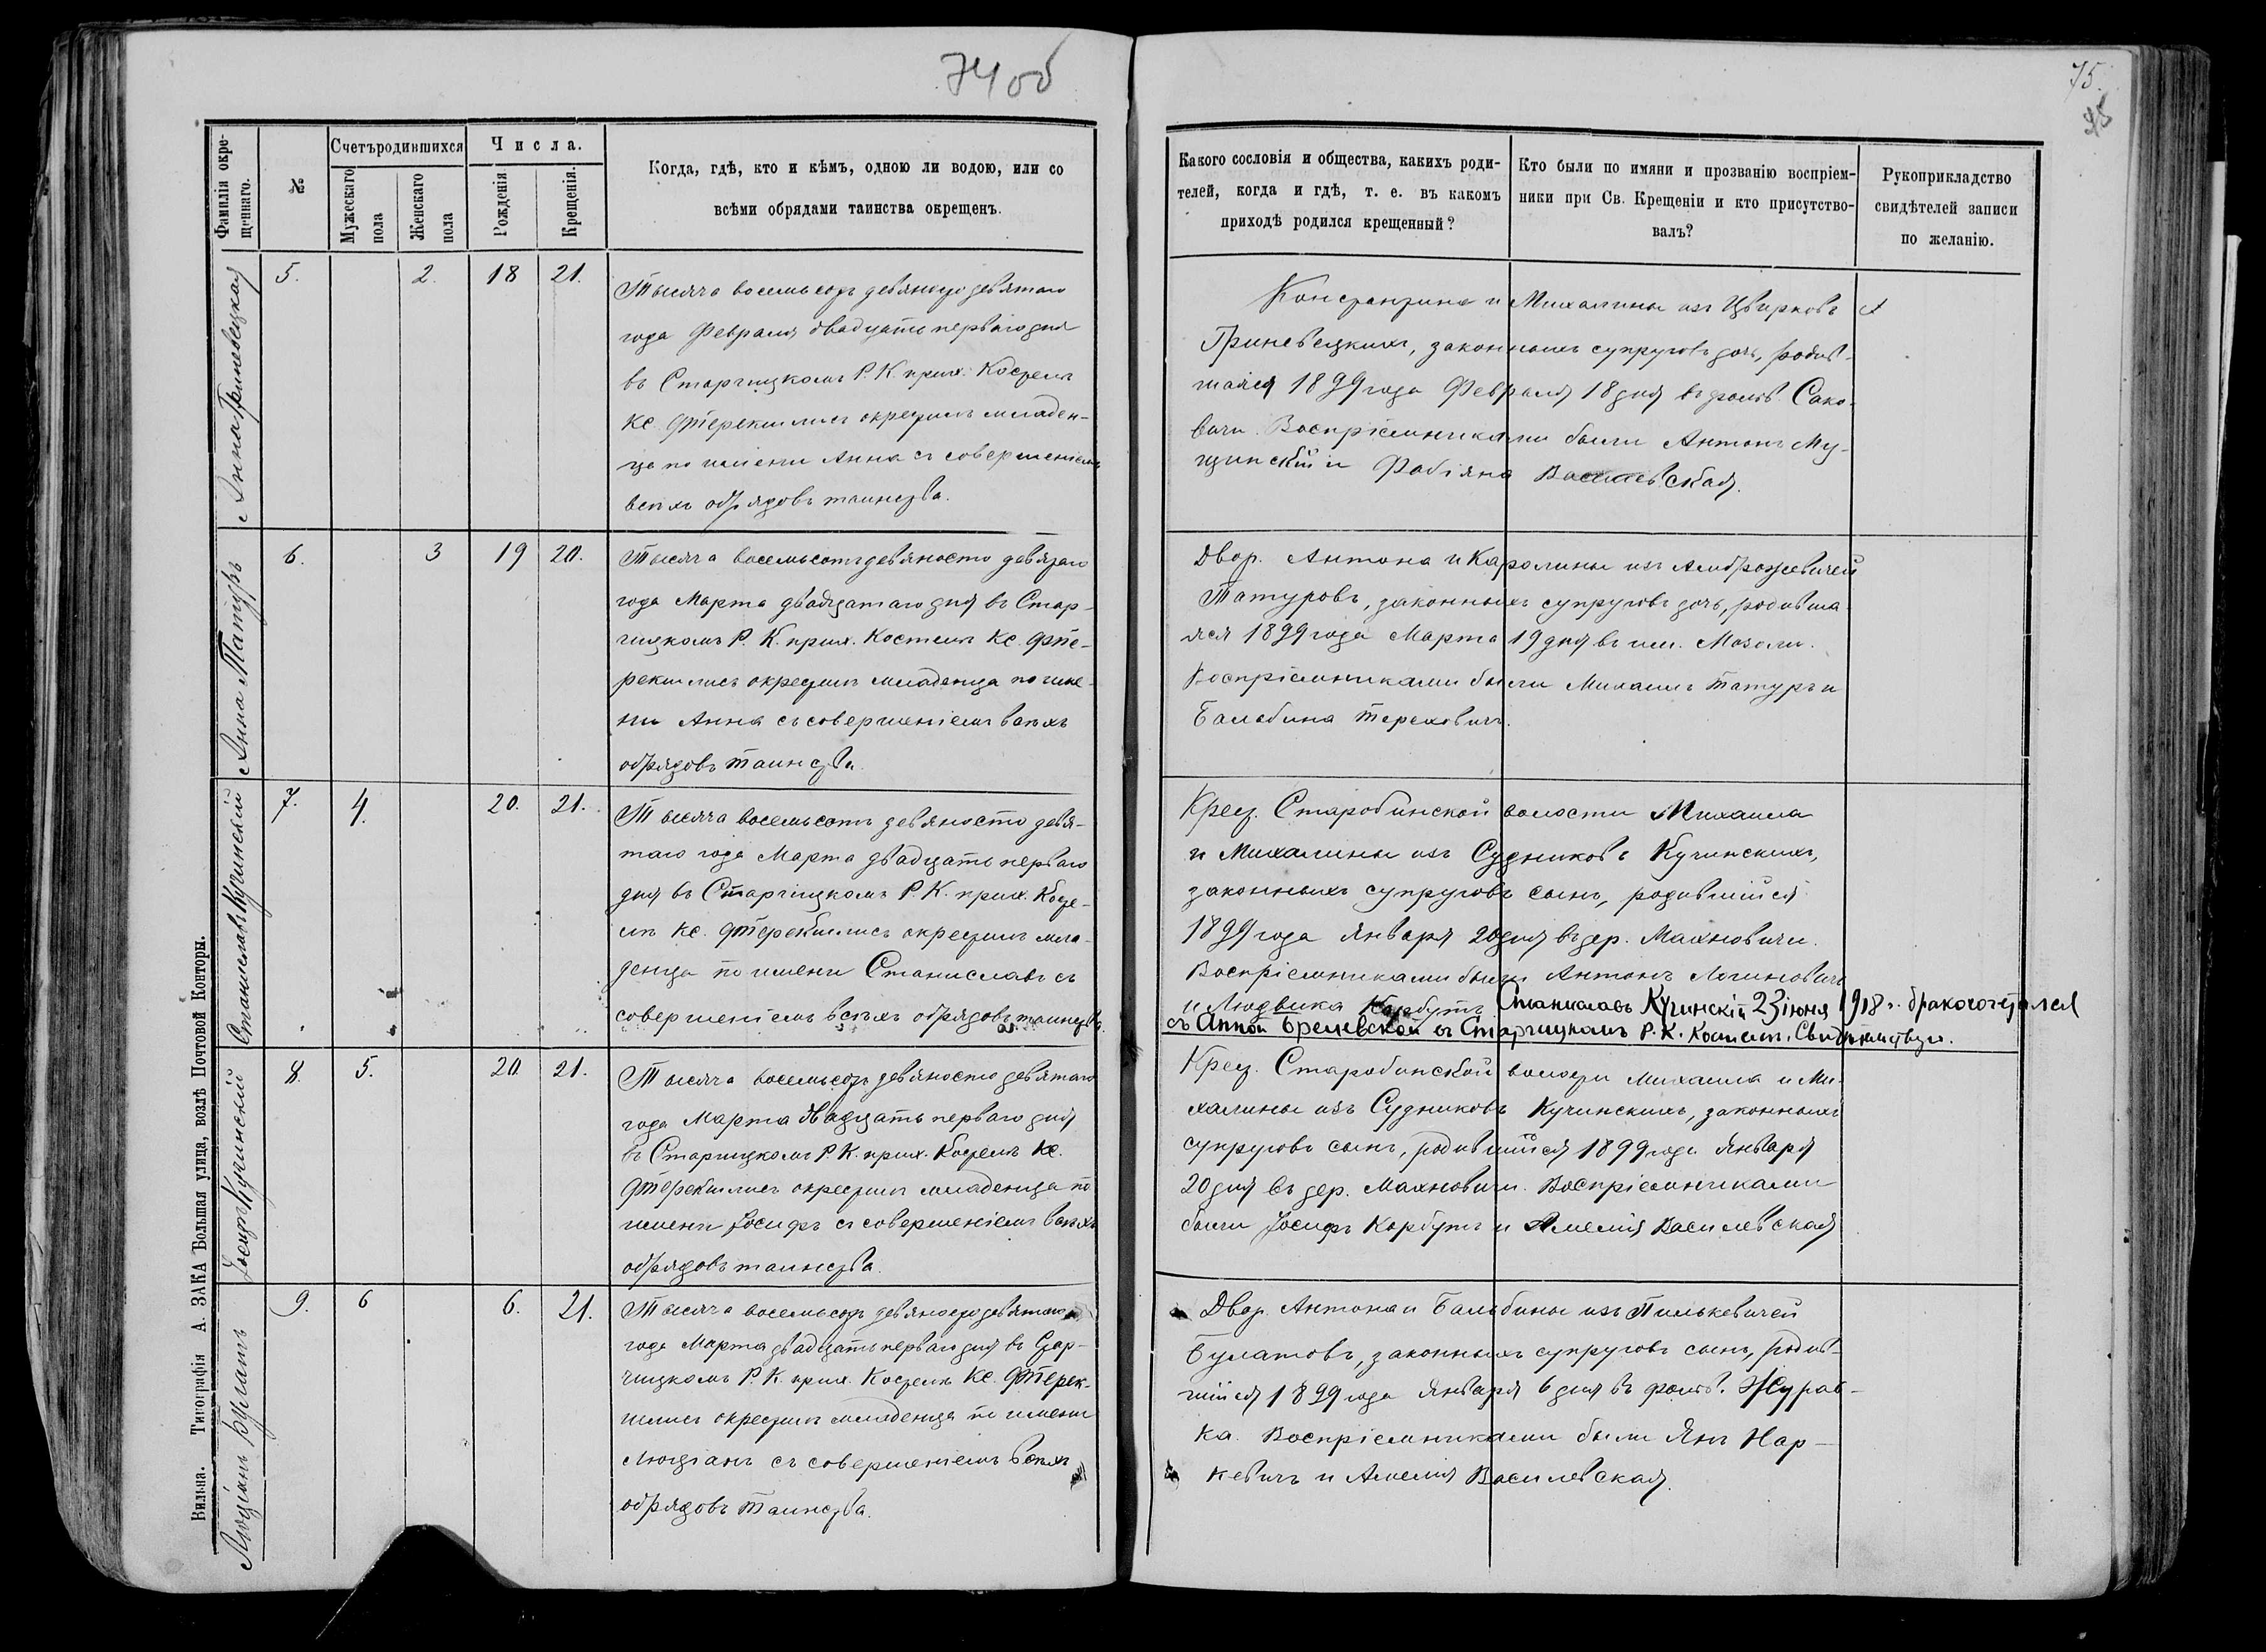 74 об
75.
Фамилія окре-
щеннаго.
№
Счетъ родившихся
Мужескаго
пола
Женскаго
пола
Числа.
Рожденія
Крещенія.
Когда, гдѣ, кто и кѣмъ, одною ли водою, или со
всѣми обрядами таинства окрещенъ.
Какого сословія и общества, какихъ роди-
телей, когда и гдѣ, т. е. въ какомъ
приходѣ родился крещенный?
Кто были по имяни и прозванію воспріем-
ники при Св. Крещеніи и кто присутство-
валъ?
Рукоприкладство
свидѣтелей записи
по желанію.
Анна Гриневецкая
5.
2.
18
21.
Тысяча восемьсотъ девяносто девятаго
года Февраля двадцать перваго дня
въ Старчицкомъ Р. К. прих. Костелѣ
Кс. Фтерекшлисъ окрестилъ младен-
ца по имени Анна съ совершеніемъ
всѣхъ обрядовъ таинства.
Константина и Михалины изъ Цвирковъ
Гриневецкихъ, законныхъ супруговъ дочь, родив-
шаяся 1899 года Февраля 18 дня въ фольв. Сако-
вичи. Воспріемниками были Антонъ Му-
щинскій и Фабіяна Василевская.
Анна Татуръ
6.
3
19
20.
Тысяча восемьсотъ девяносто девятаго
года Марта двадцатаго дня въ Стар-
чицкомъ Р. К. прих. Костелѣ Кс. Фте-
рекшлисъ окрестилъ младенца по име-
ни Анна съ совершеніемъ всѣхъ
обрядовъ таинства.
Двор. Антона и Каролины изъ Амброжевичей
Татуровъ, законныхъ супруговъ дочь, родивша-
яся 1899 года Марта 19 дня въ им. Мозоли.
Воспріемниками были Михаилъ Татуръ и
Бальбина Тереховичъ.
Станиславъ Кучинскій
7.
4.
20.
21.
Тысяча восемьсотъ девяносто девя-
таго года Марта двадцать перваго
дня въ Старчицкомъ Р. К. прих. Косте-
лѣ Кс. Фтерекшлисъ окрестилъ мла-
денца по имени Станиславъ съ
совершеніемъ всѣхъ обрядовъ таинства.
Крест. Старобинской волости Михаила
и Михалины изъ Судниковъ Кучинскихъ,
законныхъ супруговъ сынъ, родившійся
1899 года Января 20 дня въ дер. Махновичи.
Воспріемниками были Антонъ Логиновичъ
и Людвика Корбутъ. Станиславъ Кучинскій 23 іюня 1918 г. бракосочетался
съ Анной Бреневской въ Старчицкомъ Р. К. Костелѣ.
Іосифъ Кучинскій
8.
5.
20
21.
Тысяча восемьсотъ девяносто девятаго
года Марта двадцать перваго дня
въ Старчицкомъ Р. К. прих. Костелѣ Кс.
Фтерекшлисъ окрестилъ младенца по
имени Іосифъ съ совершеніемъ всѣхъ
обрядовъ таинства.
Крест. Старобинской волости Михаила и Ми-
халины изъ Судниковъ Кучинскихъ, законныхъ
супруговъ сынъ, родившійся 1899 года Января
20 дня въ дер. Махновичи. Воспріемниками
были Іосифъ Корбутъ и Амелія Василевская
Люціанъ Булатъ
9.
6
6.
21.
Тысяча восемьсотъ девяносто девятаго
года Марта двадцать перваго дня въ Стар-
чицкомъ Р. К. прих. Костелѣ Кс. Фтерек-
шлисъ окрестилъ младенца по имени
Люціанъ съ совершеніемъ всѣхъ
обрядовъ таинства.
Двор. Антона и Бальбины изъ Пилькевичей
Булатовъ, законныхъ супруговъ сынъ, родив-
шійся 1899 года Января 6 дня въ фольв. Журав-
ка. Воспріемниками были Янъ Нар-
кевичъ и Амелія Василевская.
Вильна. Типографія А. ЗАКА Большая улица, возлѣ Почтовой Конторы.